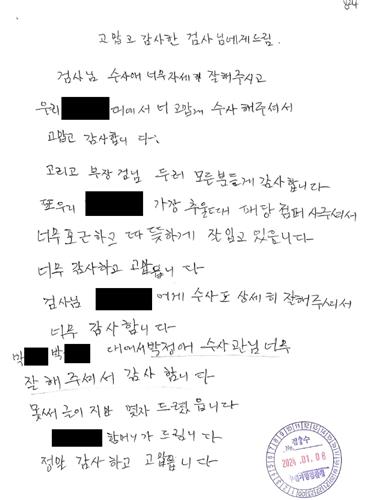 84
고맙고 감사한 검사님에게드림.
검사님 수사에 너무자세히 잘해주시고
우리 대에서 너 고맙게 수사해주셔서
고맙고 감사합니다.
그리고 부장검님 두려 모든분들게 감사합니다
또우리 가장 추울때 패당 점퍼 사주셔서
너무포근하고 따뜻하게 잘입고 있읍니다
너무 감사하고 고맙읍니다
검사님 에게 수사도 상세히 잘해주셔서
너무 감사합니다
박 박 대에서박정애 수사관님너무
잘해주셔서 감사합니다
못써 글이지만 몇자 드렸읍니다
할머니가 드립니다
정말 감사하고 고맙읍니다
접수
No.
2024. 01. 08